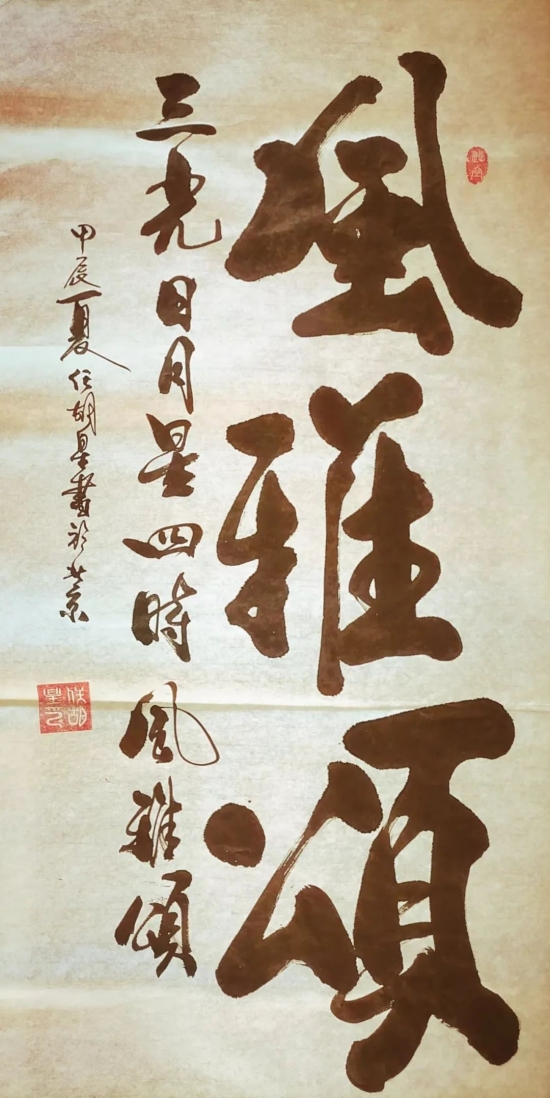 風雅頌
三光日月星四時風雅頌
甲辰夏任胡星書於北京